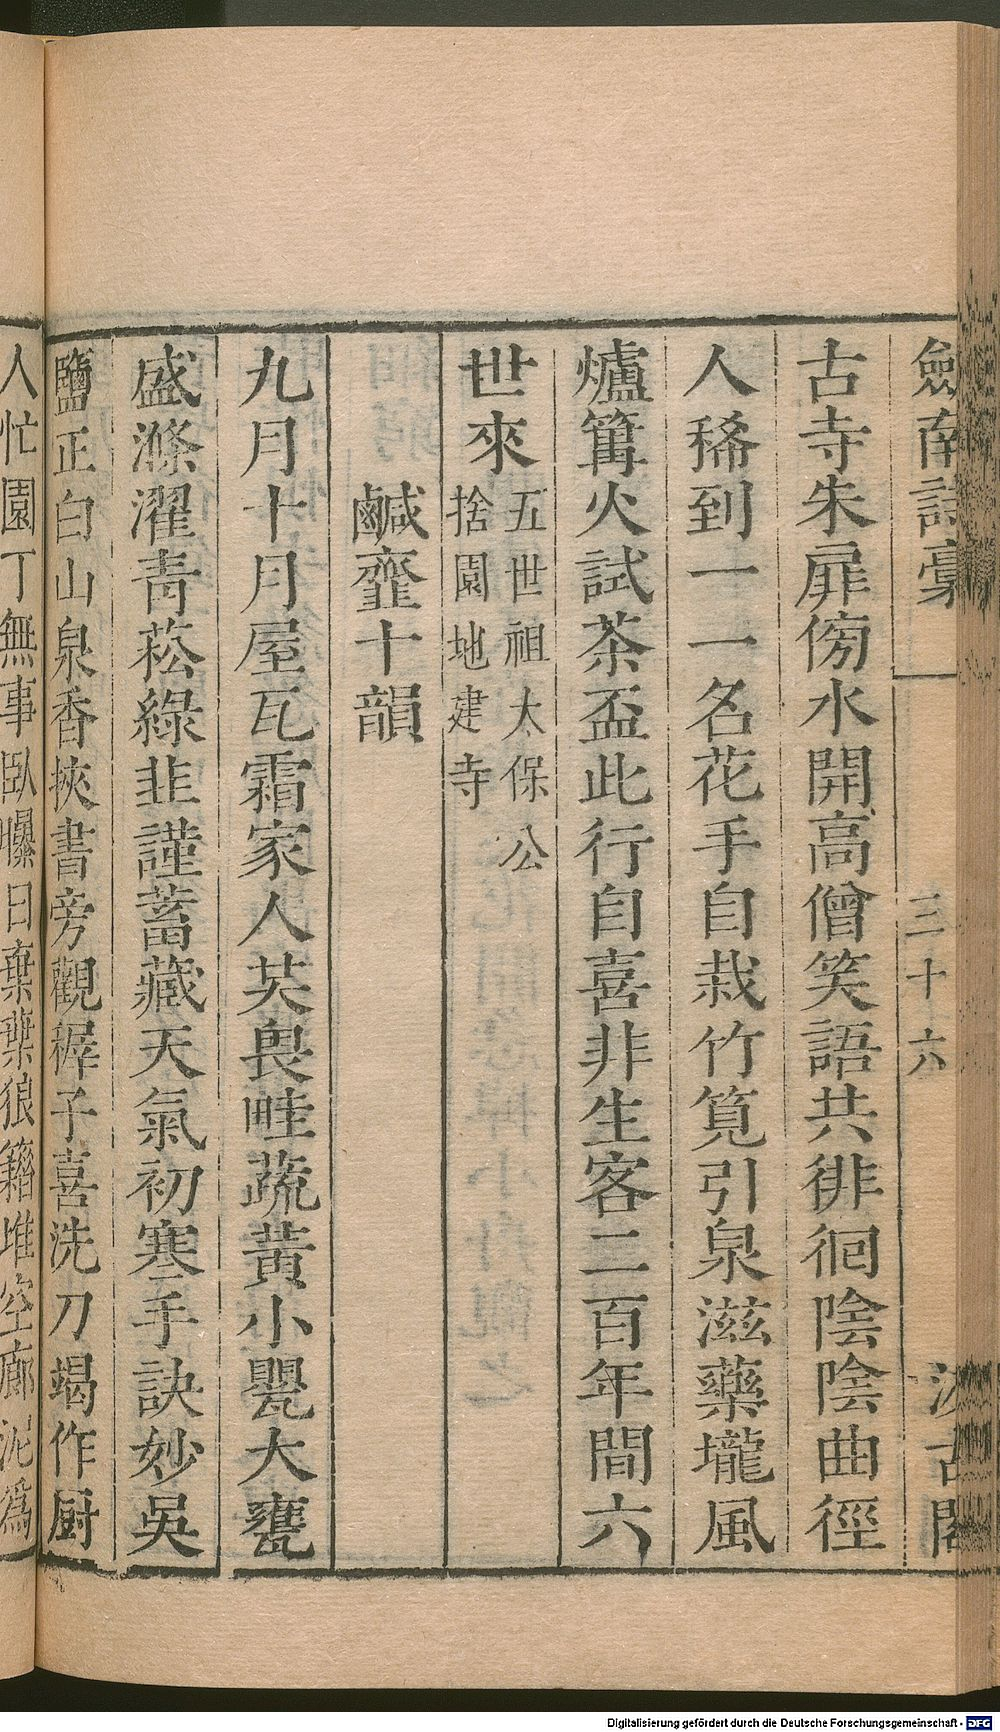 劍南詩稾 三十六 汲古閣
古寺朱扉傍水開高僧笑語共徘徊陰陰曲徑
人稀到一一名花手自栽竹筧引泉滋藥壠風
爐篝火試茶盃此行自喜非生客二百年間六
世來五世祖太保公
捨園地建寺
鹹虀十韻
九月十月屋瓦霜家人共畏畦蔬黃小甖大甕
盛滌濯靑菘綠韭謹蓄藏天氣初寒手訣妙吳
鹽正白山泉香挾書旁觀稺子喜洗刀竭作厨
人忙園丁無事臥曝日棄葉狼籍堆空廊泥爲
Digitalisierung gefördert durch die Deutsche Forschungsgemeinschaft - DFG